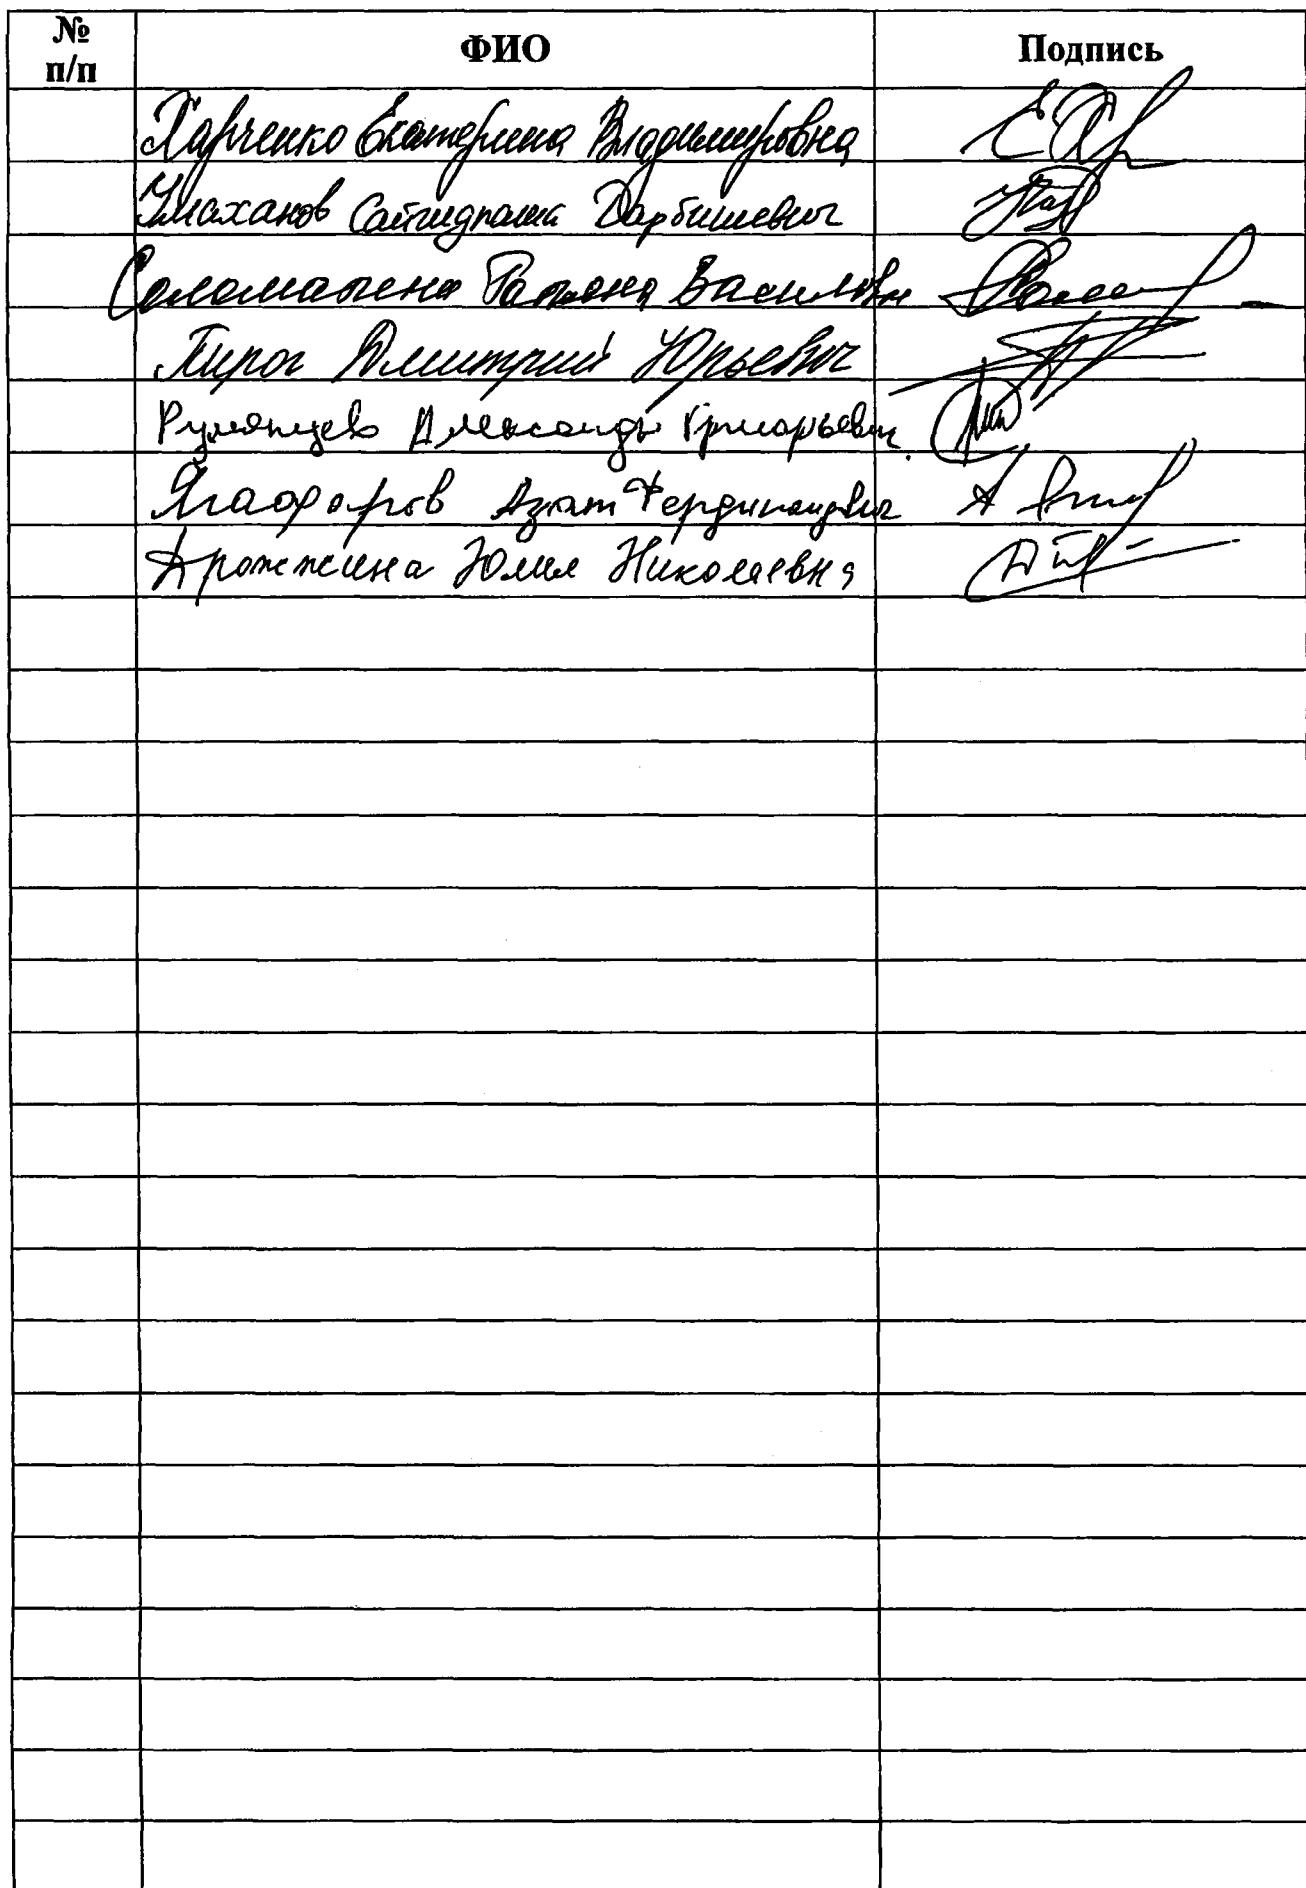 № п/п ФИО Подпись
Харченко Екатерина Владимировна
Умаханов Сайгидпаша Дарбишевич
Соломатина Татьяна Васильевн
Пирог Дмитрий Юрьевич
Румянцев Александр Григорьевич.
Ягафаров Азат Фердинандович
Дрожжина Юлия Николаевна